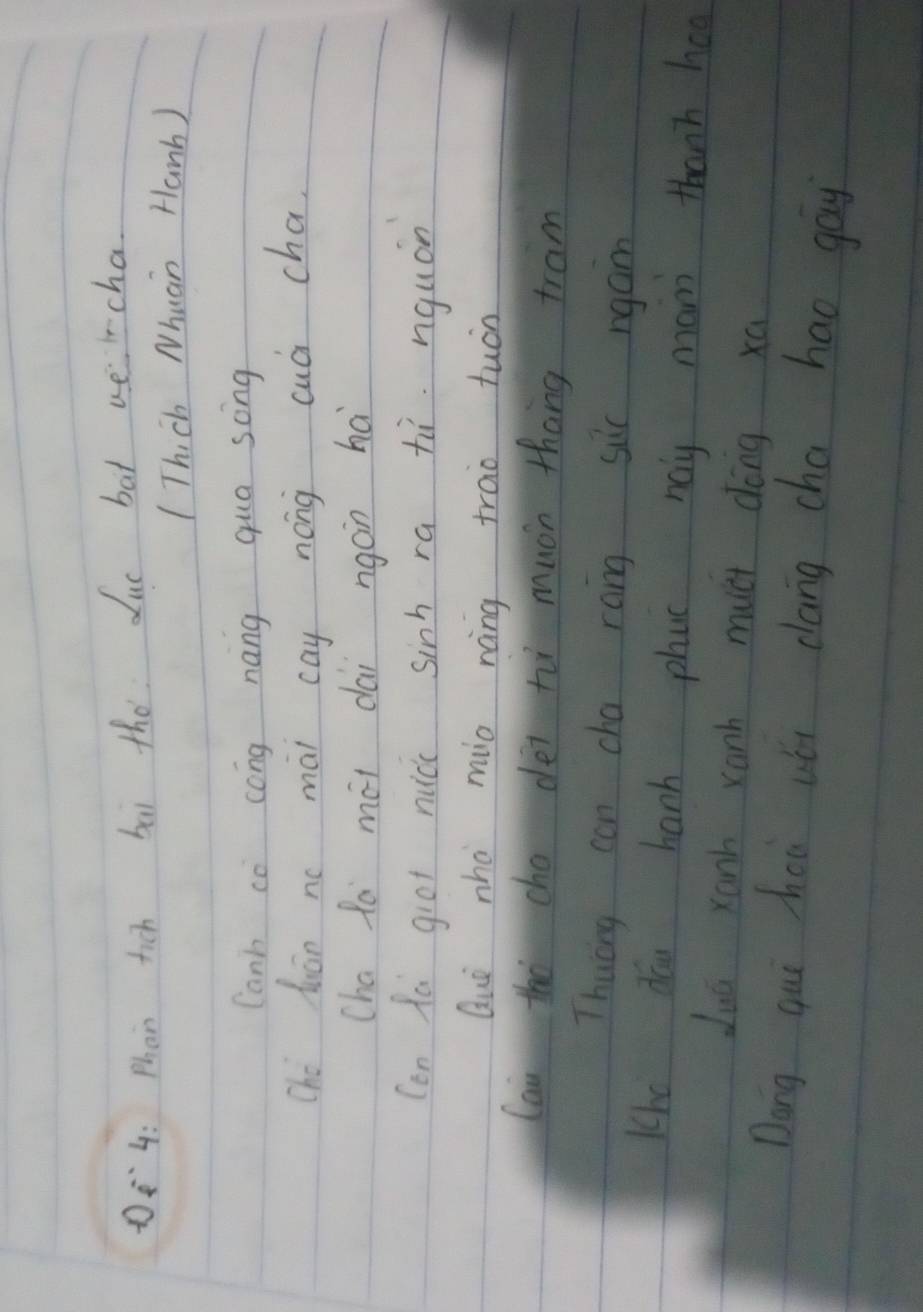 Đề 4: Phân tích bài thơ: Lục bát về cha.
(Thích Nhuận Hạnh)
Cánh cò cõng nắng qua sông
Chở luôn nc mắt cay nồng của cha.
Cha là một dải ngân hà
Con là giọt nước sinh ra từ nguồn
Quê nhà mưa nắng trào tuôn
Câu thơ cha dệt từ muôn thăng trầm
Thương con cha ráng sức ngâm
Khổ đau hạnh phúc nảy mầm thành hoa
Lúa xanh xanh mướt đồng xa
Dáng quê hoà với dáng cha hao gầy